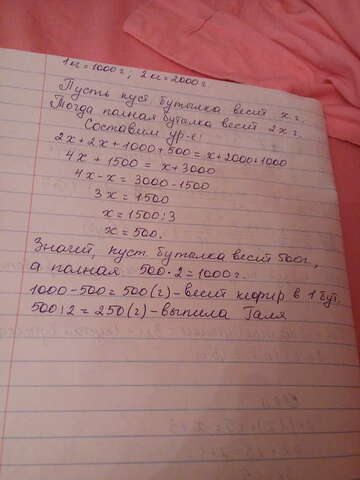 1 кг = 1000 г ; 2 кг = 2000 г.
Пусть пуст. бутылка весит x г.
Тогда полная бутылка весит 2x г.
Составим ур-е:
2x + 2x + 1000 + 500 = x + 2000 + 1000
4x + 1500 = x + 3000
4x - x = 3000 - 1500
3x = 1500
x = 1500 : 3
x = 500.
Значит, пуст. бутылка весит 500г,
а полная 500 · 2 = 1000 г.
1000 - 500 = 500 (г) - весит кефир в 1 бут.
500 : 2 = 250 (г) - выпила Галя